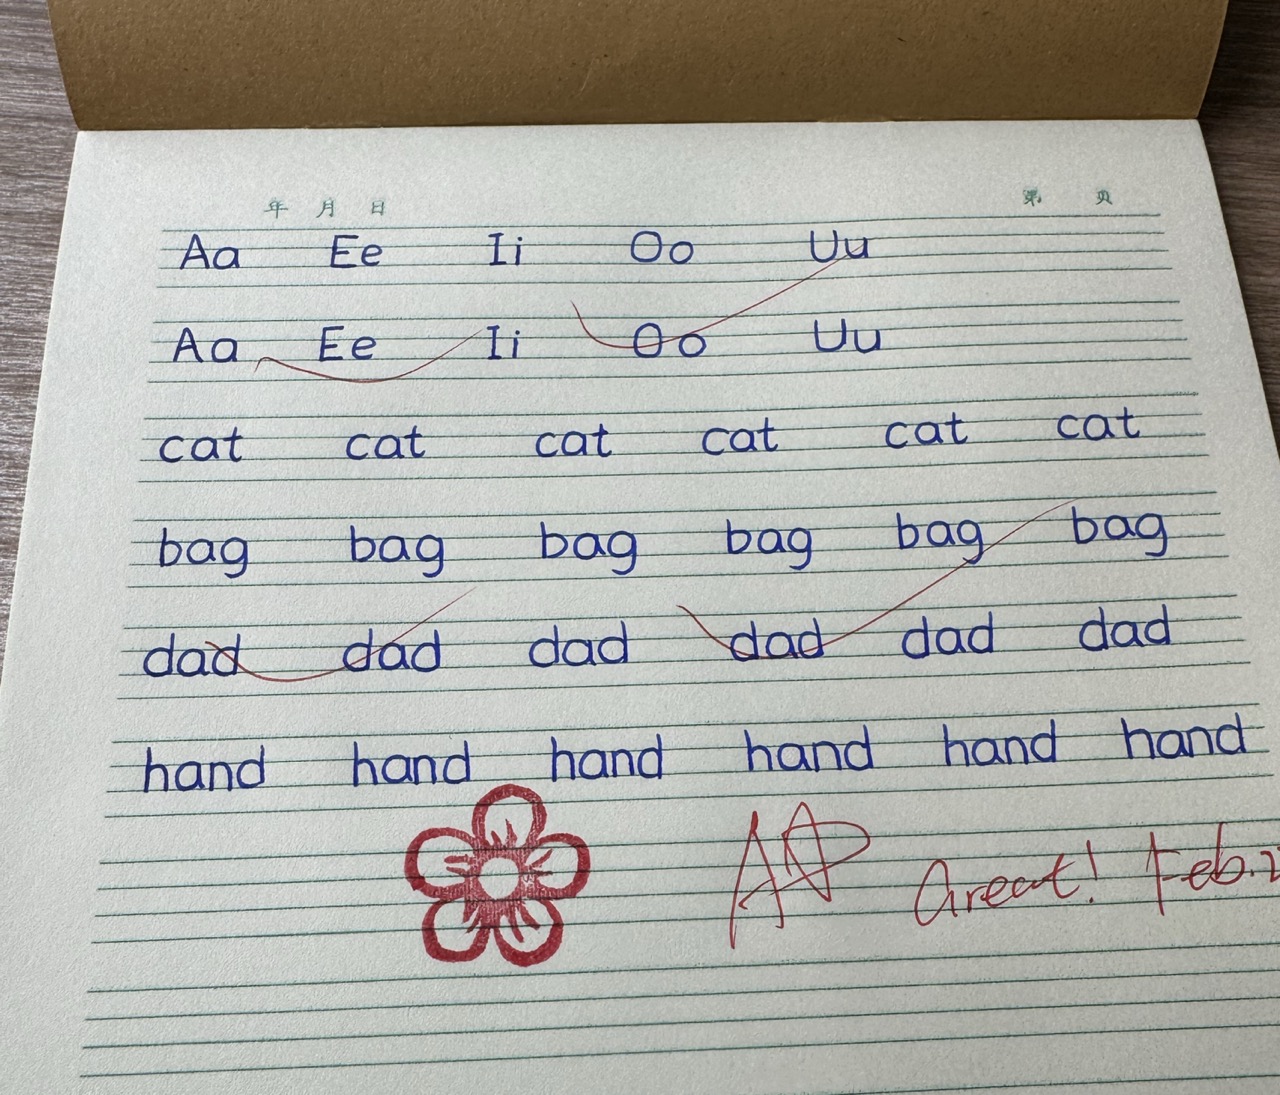 年 月 日 第 页
Aa Ee Ii Oo Uu
Aa Ee Ii Oo Uu
cat cat cat cat cat cat
bag bag bag bag bag bag
dad dad dad dad dad dad
hand hand hand hand hand hand
Great! Feb.